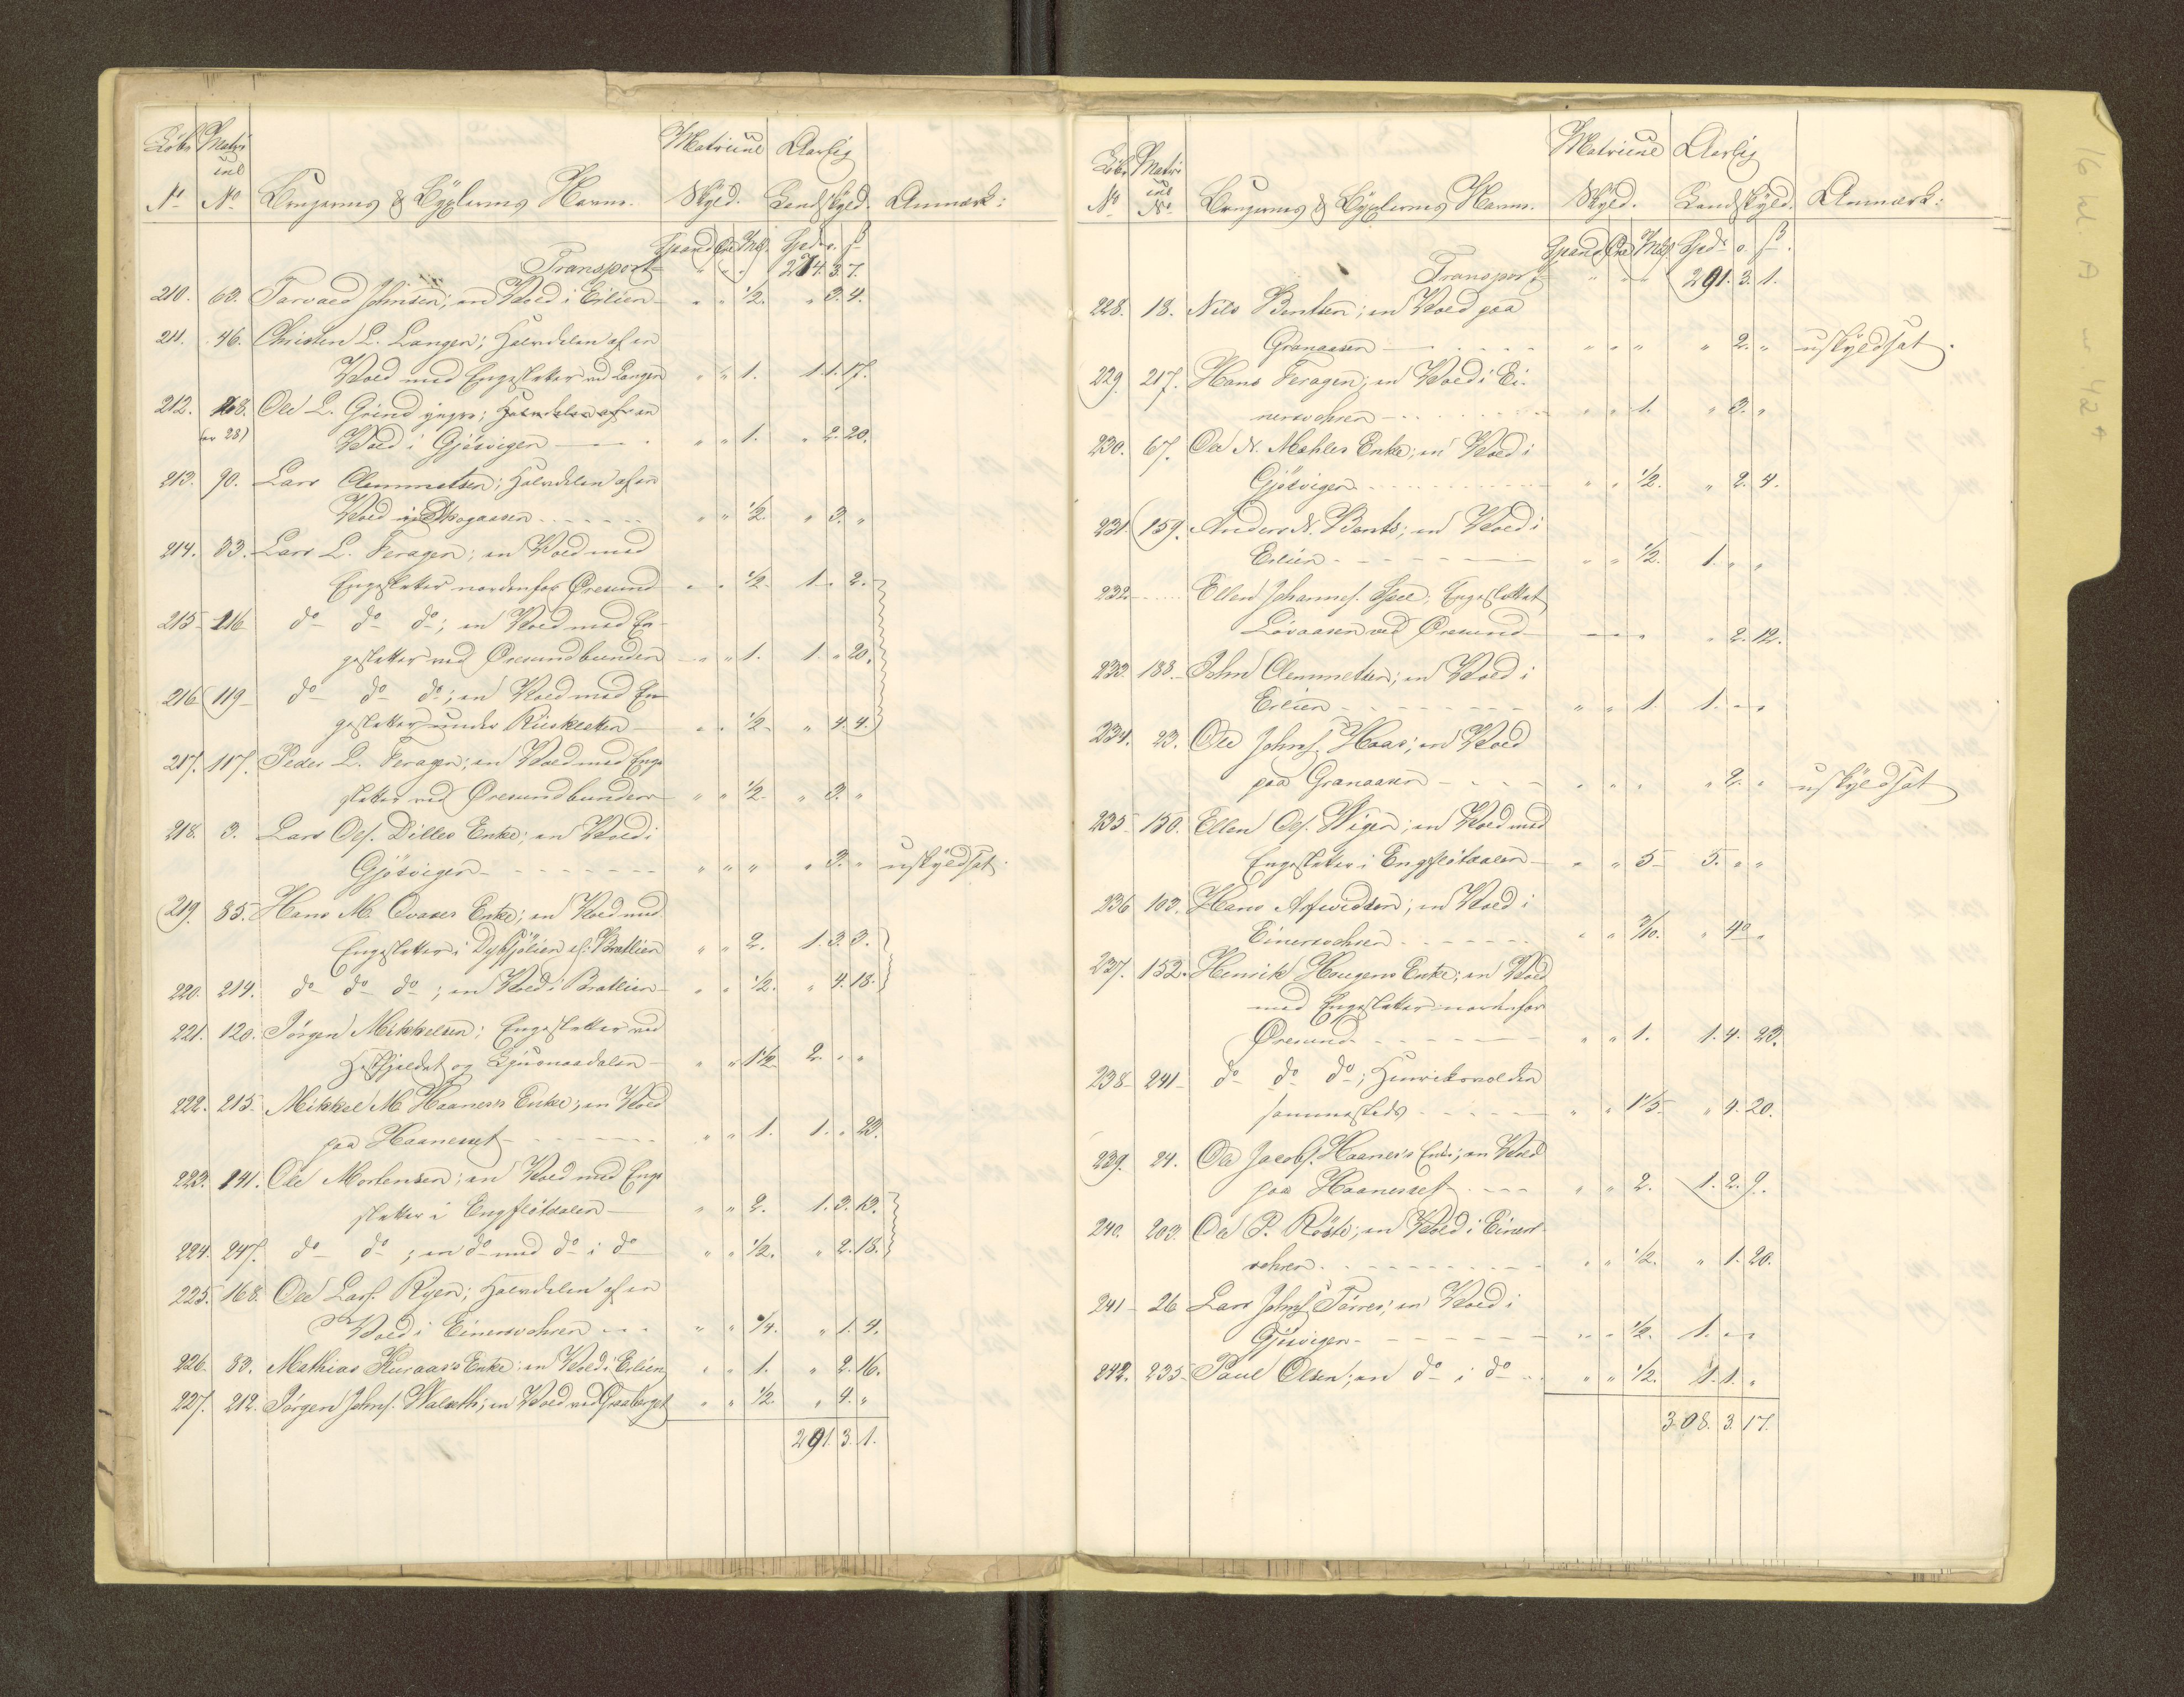 Löbe Matri Matricul Aarlig
cul
No No Brugernes & Byxlernes Navne. Skyld. Landskyld. Anmærk:
Spand Øre Mkl. Spd. o. ß
Transport " " " 274. 3. 7.
210. 63. Tarvald Johnsen; en Vold i Erlien " " 1/2. " 3. 4.
211. 46. Christen L. Langen; Halvdelen af en
Vold med Engeslatter ved Langen " " 1. 1. 1. 17.
212. 168. Ole L. Grind yngre; Halvdelen af en
(or 28) Vold i Gjösvigen " " 1. " 2. 20.
213. 90. Lars Clemmetsen; Halvdelen af en
Vold i Skogaasen " " 1/2. " 3. "
214. 33. Lars L. Feragen; en Vold med
Engeslatter nordenfor Öresund " " 1/2. 1. " 2.
215. 116 do do do; en Vold med En-
geslatter ved Öresundbunden " " 1. 1. " 20.
216. 119 do do do; en Vold med En-
geslatter under Rüskletten " " 1/2. " 4. 4.
217. 117. Peder L. Feragen; en Vold med Enge
slatter ved Öresundbunden " " 1/2. " 3. "
218. 3. Lars Ols. Dilles Enke; en Vold i
Gjösvigen " " " " 3. " uskyldsat.
219. 85. Hans M. Ovases Enke; en Vold med
Engeslatter i Dybfjölien el. Bratlien " " 2. 1. 3. 3.
220. 214. do do do; en Vold i Bratlien " " 1/2. " 4. 18.
221. 120. Jörgen Mikkelsen; Engeslatter ved
Hestfjeldet og Ljusnaadalen " " 1 1/2 2. " "
222. 215. Mikkel M. Haaness's Enke; en Vold
paa Haanesset " " 1. 1. " 23.
223. 141. Ole Mortensen; en Vold med Enge
slatter i Engflötdalen " " 2. 1. 3. 13.
224. 247. do do; en do med do i do " " 1/2. " 2. 18.
225. 168. Ole Lars. Ryen; Halvdelen af en
Vold i Einersvolsen " " 3/4. " 1. 4.
226. 83. Mathias Kuraas's Enke; en Vold i Erlien " " 1. " 2. 16.
227. 212. Jörgen Johns. Walseth; en Vold ved Graaberget " " 1/2. " 4. "
291. 3. 1.
Löbe Matri Matricul Aarlig
cul
No No Brugernes & Byxlernes Navne. Skyld. Landskyld. Anmærk:
Spand Øre Mkl. Spd. o. ß.
Transport " " " 291. 3. 1.
228. 18. Nils Bentsen; en Vold paa
Granaasen " " " " 2. " uskyldsat.
229. 217. Hans Feragen; en Vold i Ei-
nersvolsen " " 1. " 3. "
230. 67. Ole N. Mahles Enke; en Vold i
Gjösvigen " " 1/2. " 2. 4.
231. 159. Anders N. Bents; en Vold i
Erlien " " 1/2. 1. " "
232. Ellen Johannes. Spell; Engeslattet
Lövaasen ved Öresund " " " " 2. 12.
233. 188. John Clemmetsen; en Vold i
Erlien " " 1. 1. " "
234. 23. Ole Johns. Haas; en Vold
paa Granaasen " " " " 2. " uskyldsat
235. 150. Ellen Ols. Wigen; en Vold med
Engeslatter i Engflötdalen " " 5 5. " "
236. 103. Hans Arfvedsen; en Vold i
Einersvolsen " " 3/10. " 4. "
237. 152. Henrik Hougens Enke; en Vold
med Engeslatter nordenfor
Öresund " " 1. 1. 4. 23.
238. 241. do do do; Henriksvolden
sammesteds " " 1 1/5. " 4. 20.
239. 24. Ole Jacobs. Haaness's Enke; en Vold
paa Haanesset " " 2. 1. 2. 9.
240. 203. Ole P. Röste; en Vold i Einers-
volsen " " 1/2. " 1. 20.
241. 26. Lars Johns. Tørres; en Vold i
Gjösvigen " " 1/2. 1. " "
242. 235. Paul Olsen; en do i do " " 1/2. 1. 1. "
308. 3. 17.